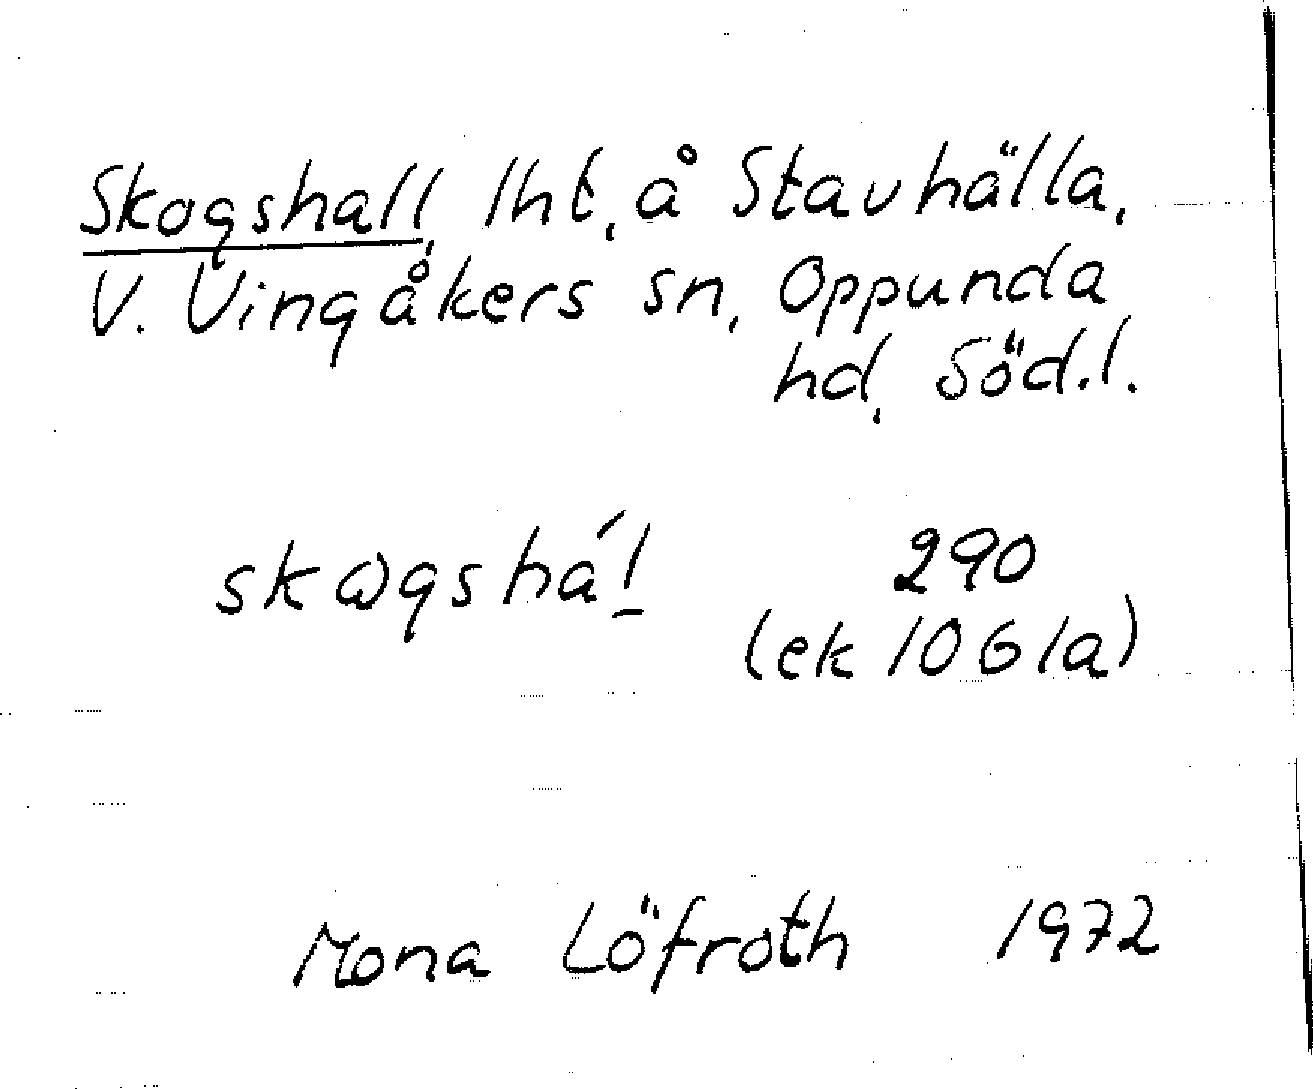 Skogshall, lht, å Stavhälla,
V. Vingåkers sn, Oppunda
hd, Söd.l.
skꞷgshá l̲ 290
(ek 1061a)
Mona Löfroth 1972